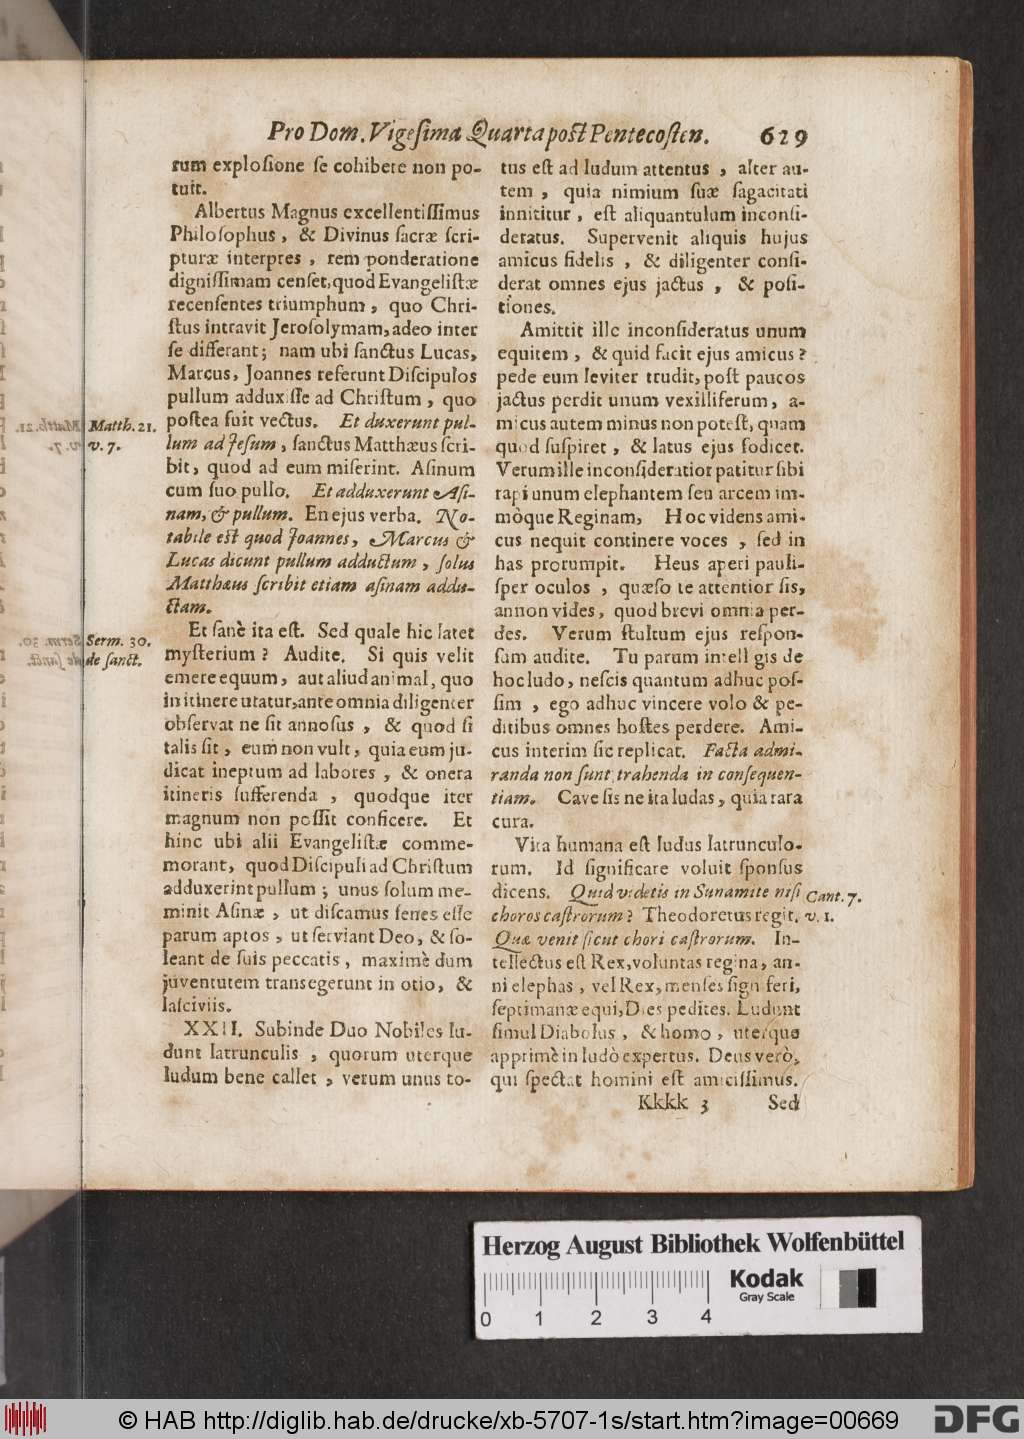 Pro Dom. Vigeſima Quarta poſt Pentecoſten. 629
rum exploſione ſe cohibere non po-
tuit.
Albertus Magnus excellentiſſimus
Philoſophus, & Divinus ſacræ ſcri-
pturæ interpres, rem ponderatione
digniſſimam cenſet, quod Evangeliſtæ
recenſentes triumphum, quo Chri-
ſtus intravit Jeroſolymam, adeo inter
ſe differant; nam ubi ſanctus Lucas,
Marcus, Joannes referunt Diſcipulos
pullum adduxiſſe ad Chriſtum, quo
poſtea fuit vectus. Et duxerunt pul-
lum ad Jeſum, ſanctus Matthæus ſcri-
bit, quod ad eum miſerint. Aſinum
cum ſuo pullo. Et adduxerunt Aſi-
nam, & pullum. En ejus verba. No-
tabile eſt quod Joannes, Marcus &
Lucas dicunt pullum adductum, ſolus
Matthæus ſcribit etiam aſinam addu-
ctam.
Et ſanè ita eſt. Sed quale hic latet
myſterium? Audite. Si quis velit
emere equum, aut aliud animal, quo
in itinere utatur, ante omnia diligenter
obſervat ne ſit annoſus, & quod ſi
talis ſit, eum non vult, quia eum ju-
dicat ineptum ad labores, & onera
itineris ſufferenda, quodque iter
magnum non poſſit conficere. Et
hinc ubi alii Evangeliſtæ comme-
morant, quod Diſcipuli ad Chriſtum
adduxerint pullum; unus ſolum me-
minit Aſinæ, ut diſcamus ſenes eſſe
parum aptos, ut ſerviant Deo, & ſo-
leant de ſuis peccatis, maximè dum
juventutem transegerunt in otio, &
laſciviis.
XXII. Subinde Duo Nobiles lu-
dunt latrunculis, quorum uterque
ludum bene callet, verum unus to-
Matth. 21.
v. 7.
Serm. 30.
de ſanct.
tus eſt ad ludum attentus, alter au-
tem, quia nimium ſuæ ſagacitati
innititur, eſt aliquantulum inconſi-
deratus. Supervenit aliquis hujus
amicus fidelis, & diligenter conſi-
derat omnes ejus jactus, & poſi-
tiones.
Amittit ille inconſideratus unum
equitem, & quid facit ejus amicus?
pede eum leviter trudit, poſt paucos
jactus perdit unum vexilliferum, a-
micus autem minus non poteſt, quam
quod ſuſpiret, & latus ejus fodicet.
Verum ille inconſideratior patitur ſibi
rapi unum elephantem ſeu arcem im-
mòque Reginam, Hoc videns ami-
cus nequit continere voces, ſed in
has prorumpit. Heus aperi pauli-
ſper oculos, quæſo te attentior ſis,
annon vides, quod brevi omnia per-
des. Verum ſtultum ejus reſpon-
ſum audite. Tu parum intell gis de
hoc ludo, neſcis quantum adhuc poſ-
ſim, ego adhuc vincere volo & pe-
ditibus omnes hoſtes perdere. Ami-
cus interim ſic replicat. Facta admi-
randa non ſunt trahenda in conſequen-
tiam. Cave ſis ne ita ludas, quia rara
cura.
Vita humana eſt ludus latrunculo-
rum. Id ſignificare voluit ſponſus
dicens. Quid videtis in Sunamite niſi
choros caſtrorum? Theodoretus legit.
Quæ venit ſicut chori caſtrorum. In-
tellectus eſt Rex, voluntas regina, an-
ni elephas, vel Rex, menſes ſigniferi,
ſeptimanæ equi, Dies pedites. Ludunt
ſimul Diabolus, & homo, uterque
apprimè in ludò expertus. Deus verò,
qui ſpectat homini eſt amiciſſimus.
Cant. 7.
v. 1.
Kkkk 3 Sed
Herzog August Bibliothek Wolfenbüttel
Kodak
Gray Scale
0 1 2 3 4
© HAB http://diglib.hab.de/drucke/xb-5707-1s/start.htm?image=00669
DFG